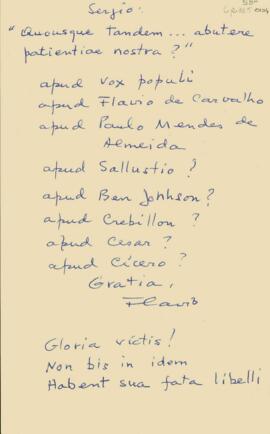 Sergio:
"Quousque tandem... abutere
patientiae nostra?"
apud vox populi
apud Flavio de Carvalho
apud Paulo Mendes de
Almeida
apud Sallustio?
apud Ben Johnson?
apud Crebillon?
apud Cesar?
apud Cícero?
Gratia,
Flavio
Gloria victis!
Non bis in idem
Habent sua fata libelli